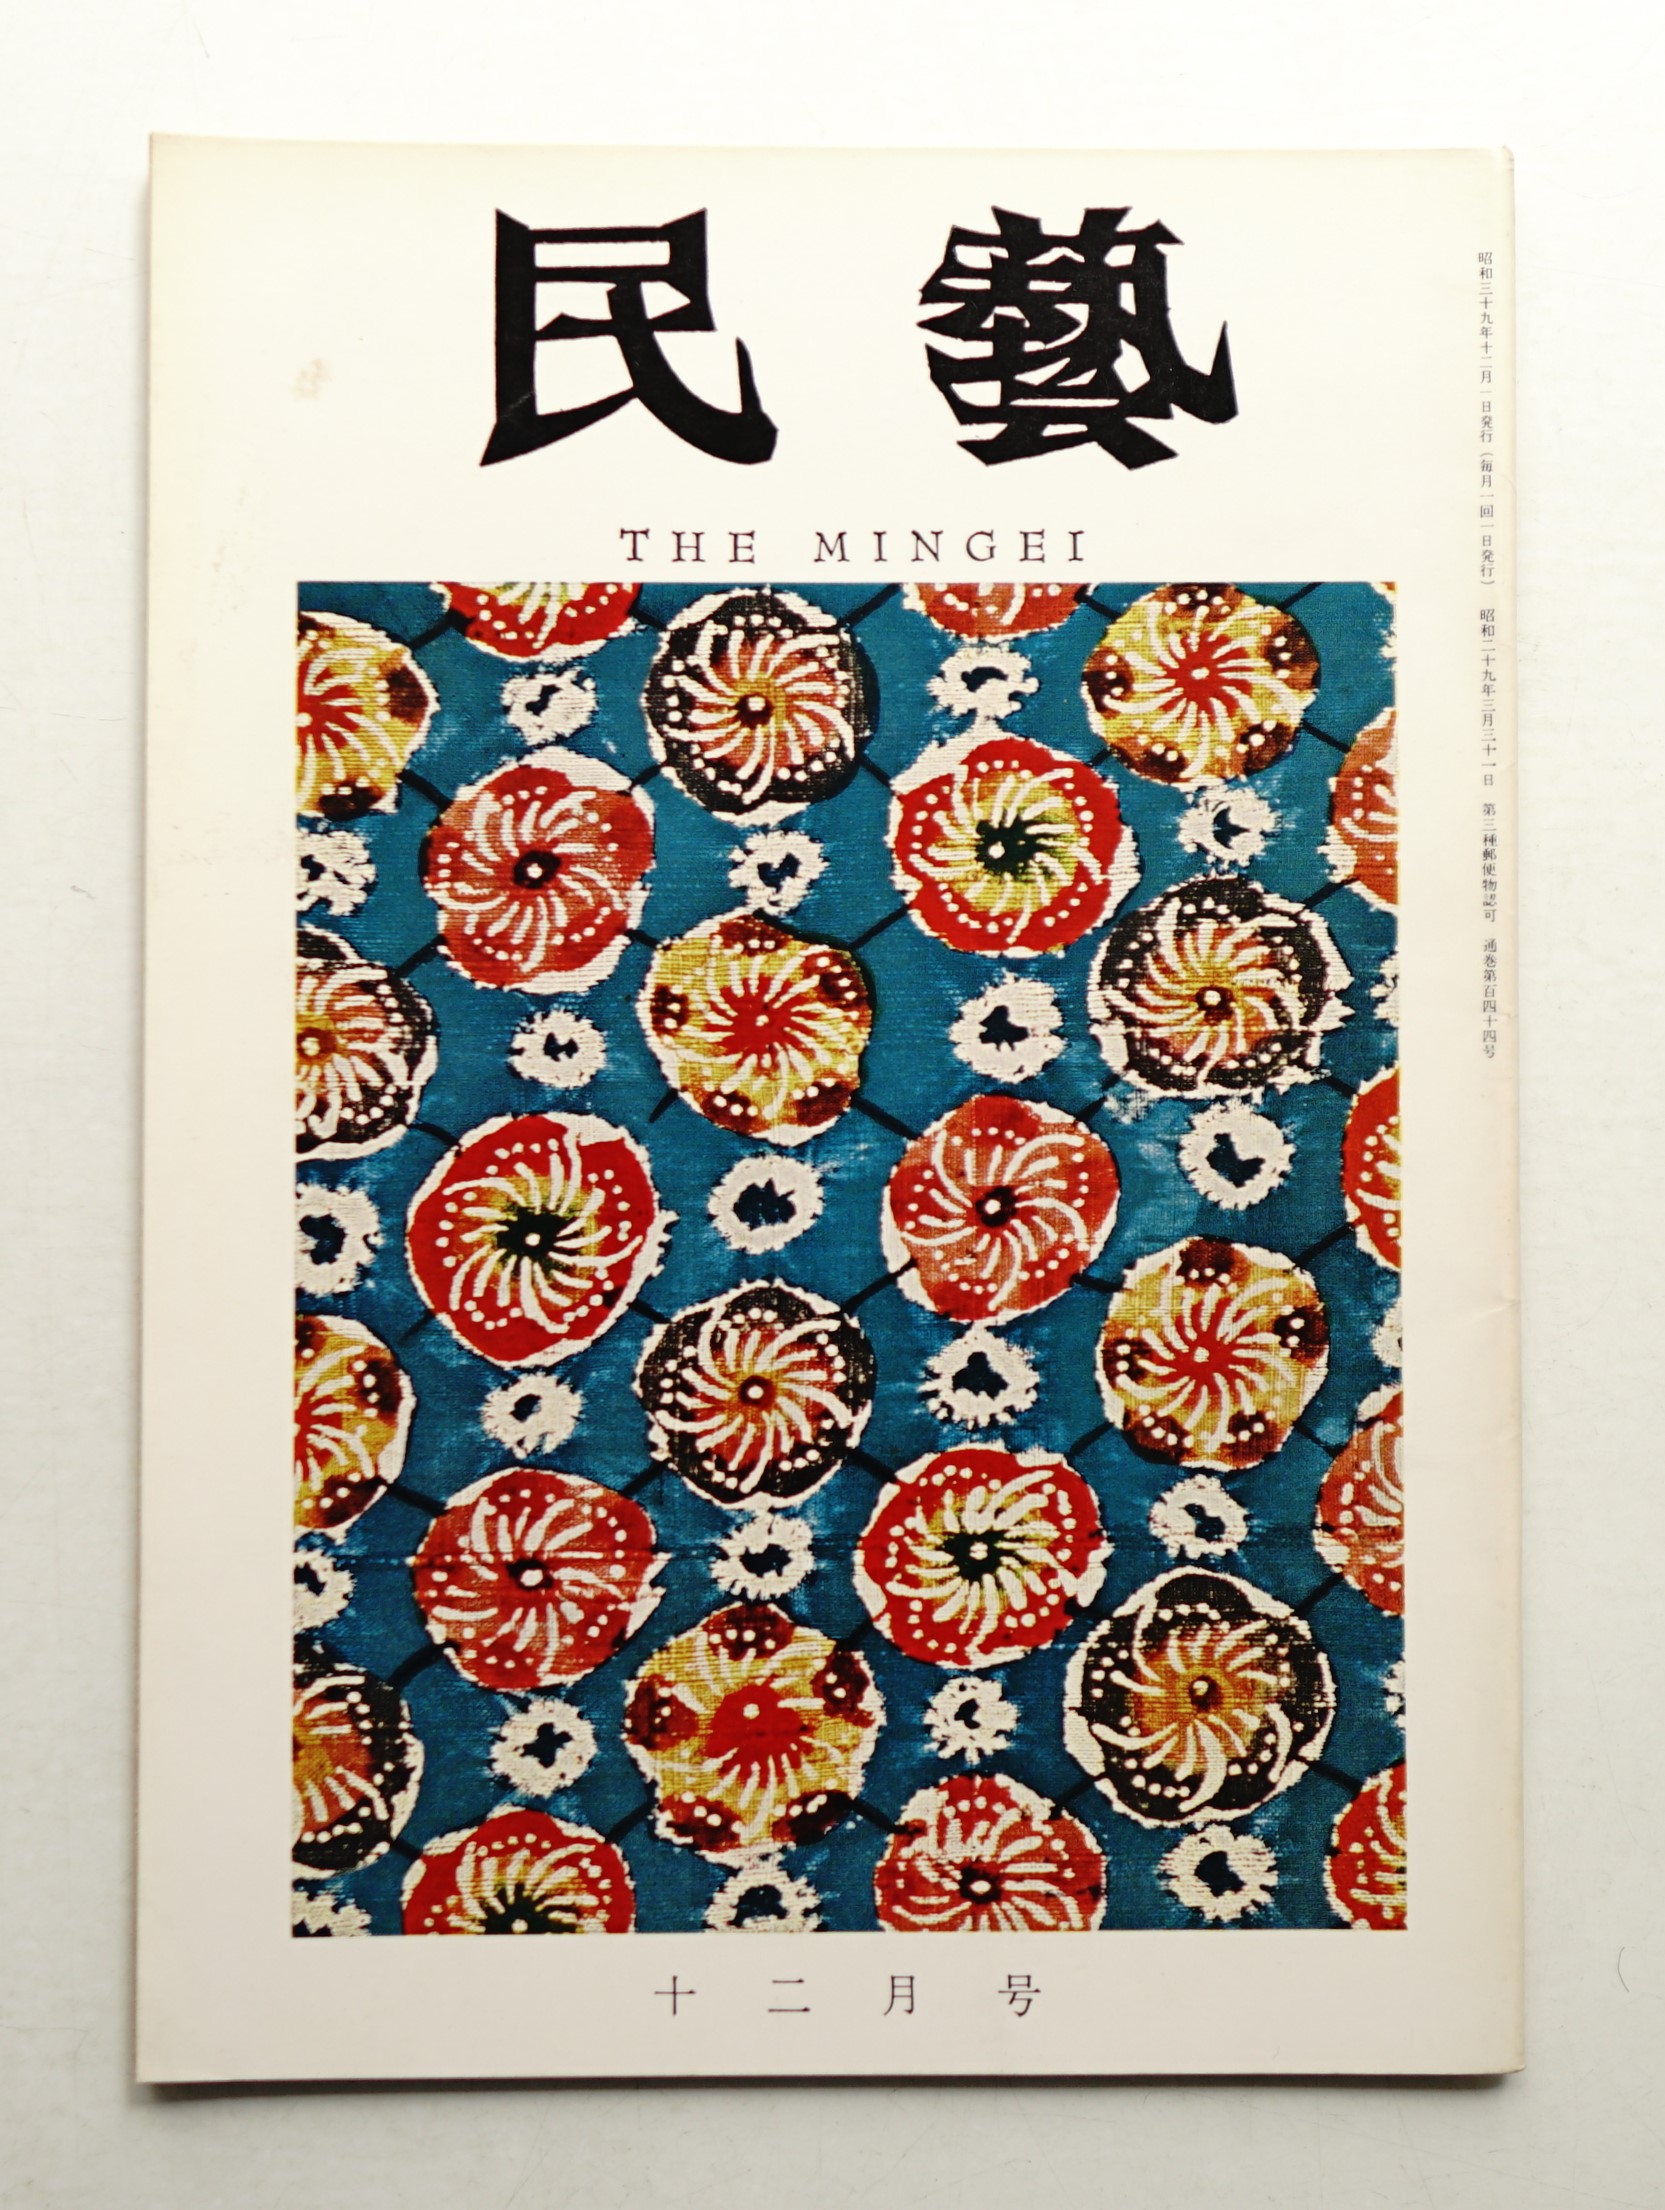 民藝
THE MINGEI
昭和三十九年十二月一日発行（毎月一回一日発行） 昭和二十九年三月三十一日 第三種郵便物認可 通巻第百四十四号
十二月号